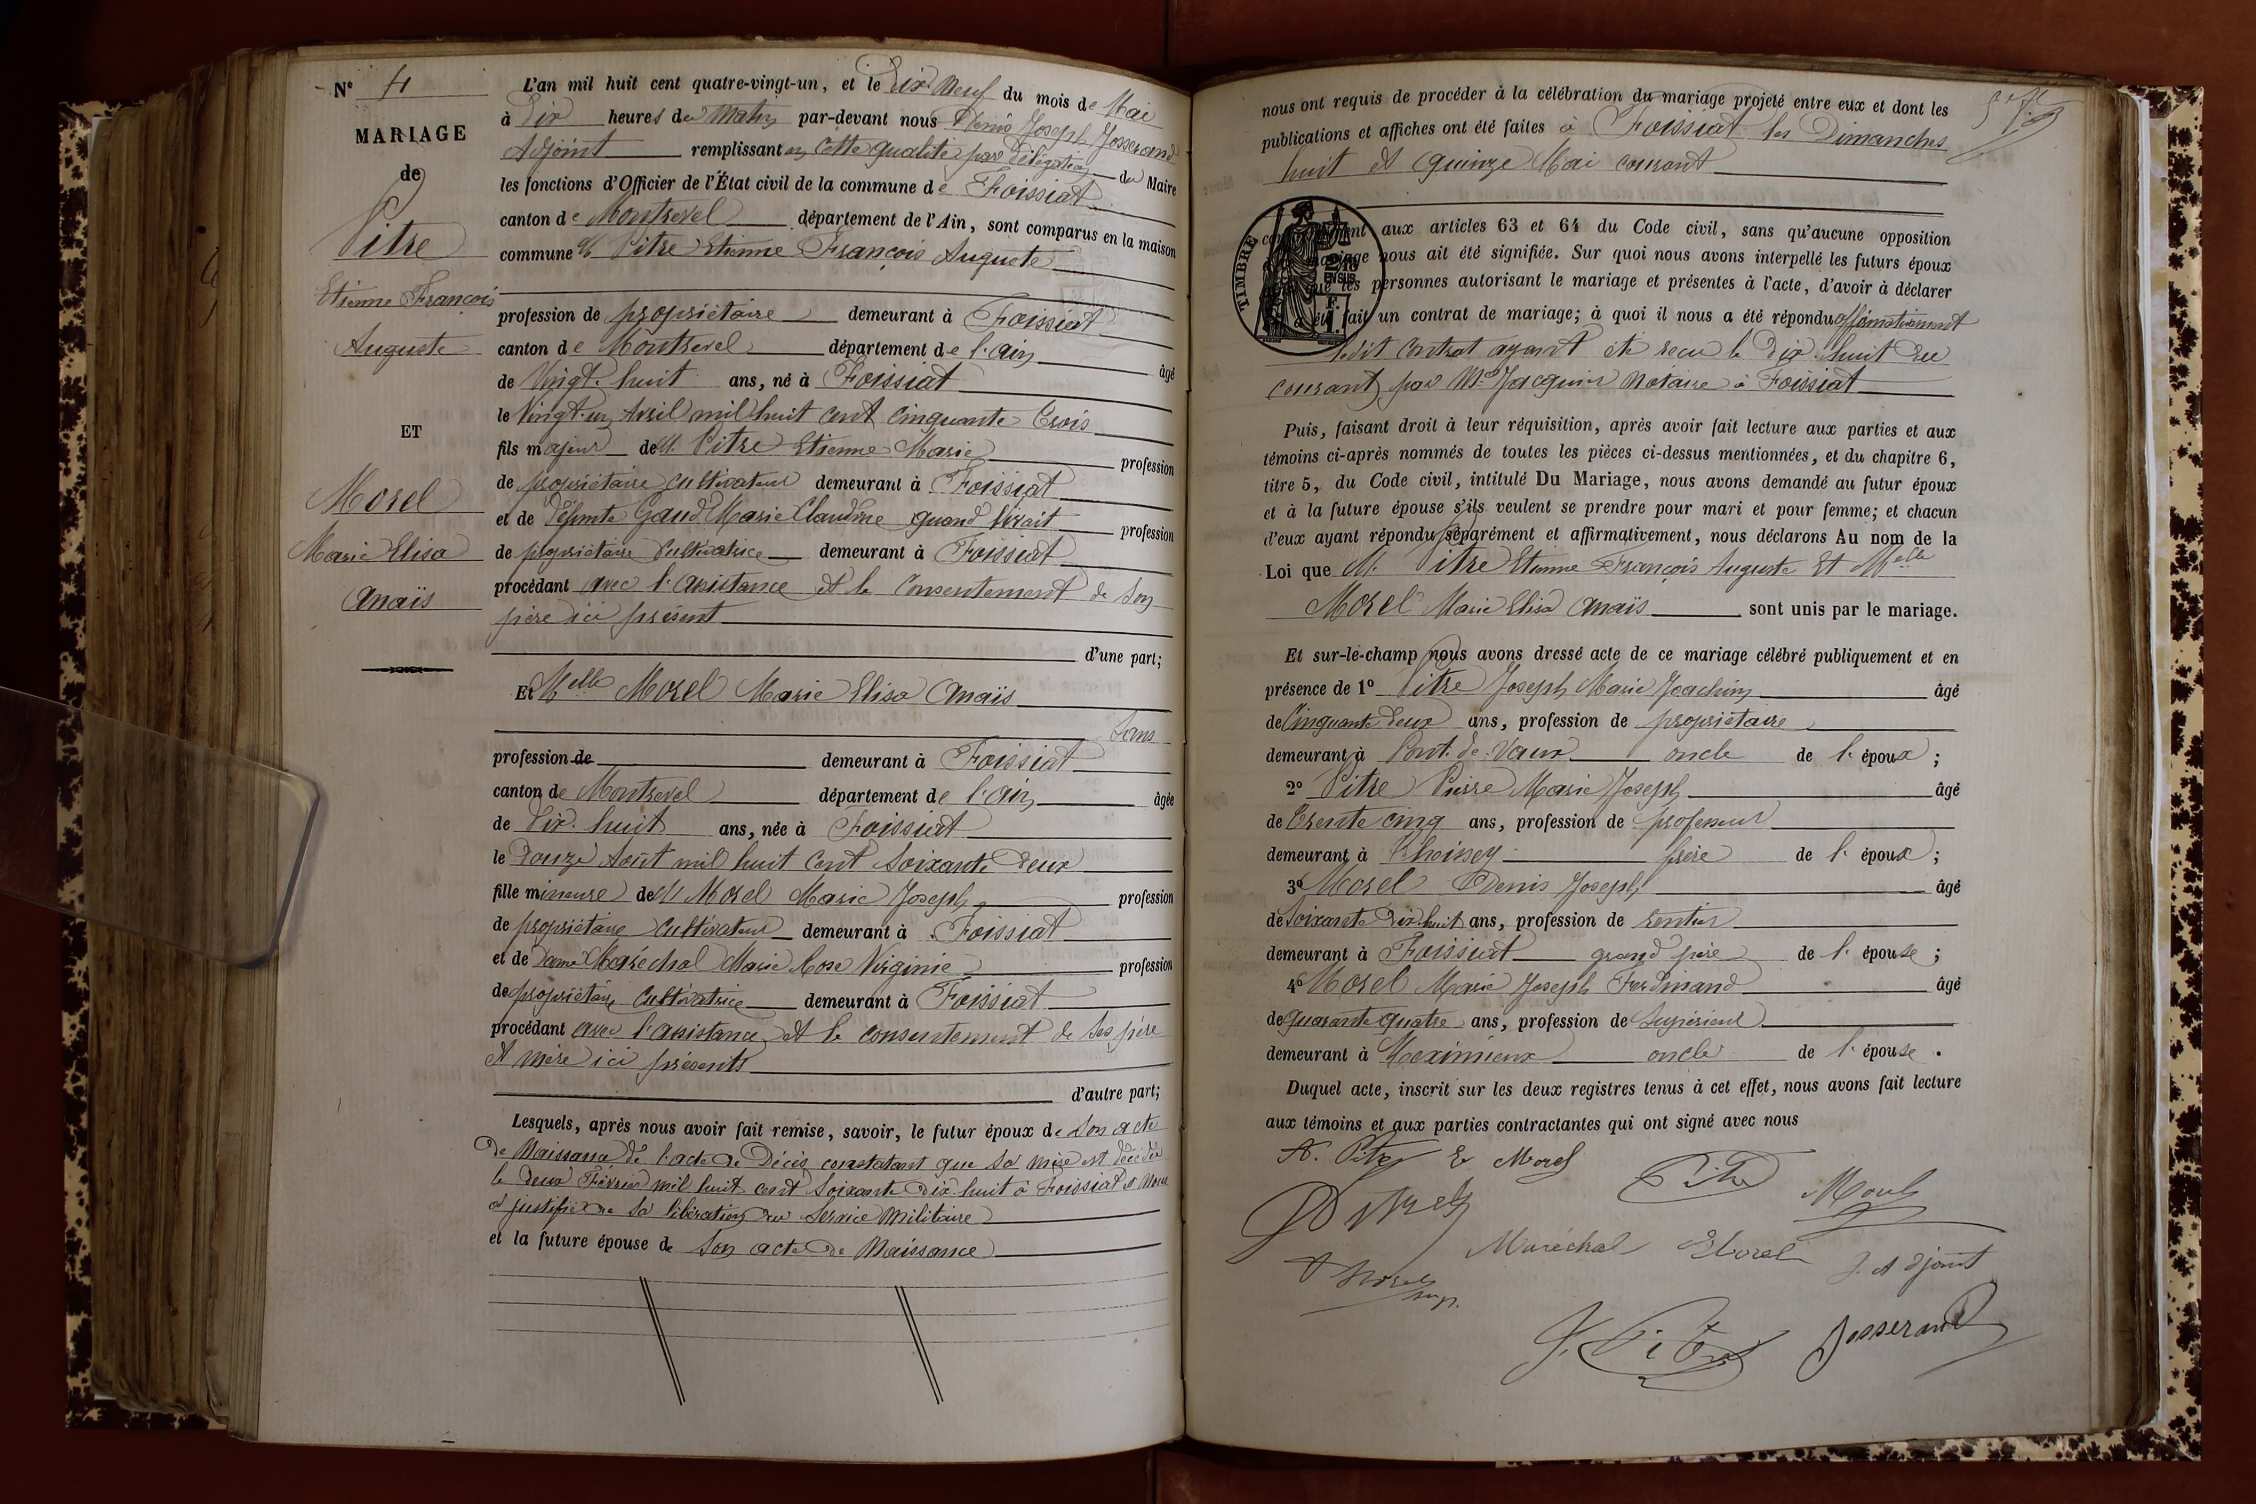 N° 4
MARIAGE
de
Pitre
Etienne François
Auguste
ET
Morel
Marie Elisa
Anaïs
L'an mil huit cent quatre-vingt-un, et le Dix Neuf du mois de Mai
à Dix heures du Matin par-devant nous Denis Joseph Josserand
Adjoint remplissant en cette qualité par délégation du Maire
les fonctions d'Officier de l'État civil de la commune de Foissiat
canton de Montrevel département de l'Ain, sont comparus en la maison
commune M. Pitre Etienne François Auguste
profession de propriétaire demeurant à Foissiat
canton de Montrevel département de l'ain âgé
de Vingt-huit ans, né à Foissiat
le Vingt-un Avril mil huit cent cinquante Trois
fils majeur de M. Pitre Etienne Marie profession
de propriétaire cultivateur demeurant à Foissiat
et de Défunte Gaud Marie Claudine quand vivait profession
de propriétaire Cultivatrice demeurant à Foissiat
procédant avec l'assistance et le Consentement de son
père ici présent
d'une part;
Et Melle Morel Marie Elisa Anaïs
Sans
profession de demeurant à Foissiat
canton de Montrevel département de l'ain âgée
de Dix-huit ans, née à Foissiat
le Douze Août mil huit Cent Soixante Deux
fille mineure de M Morel Marie Joseph profession
de propriétaire cultivateur demeurant à Foissiat
et de Dame Maréchal Marie Rose Virginie profession
de propriétaire Cultivatrice demeurant à Foissiat
procédant avec l'assistance et le consentement de ses père
et mère ici présents
d'autre part;
Lesquels, après nous avoir fait remise, savoir, le futur époux de son acte
de Naissance de l'acte de Décès constatant que sa mère est décédée
le deux Février mil huit cent soixante Dix huit à Foissiat & nous
a justifié de sa libération du Service Militaire
et la future épouse de son acte de Naissance
nous ont requis de procéder à la célébration du mariage projeté entre eux et dont les
publications et affiches ont été faites à Foissiat les Dimanches
huit et quinze Mai courant
TIMBRE
aux articles 63 et 64 du Code civil, sans qu'aucune opposition
mariage nous ait été signifiée. Sur quoi nous avons interpellé les futurs époux
que les personnes autorisant le mariage et présentes à l'acte, d'avoir à déclarer
fait un contrat de mariage; à quoi il nous a été répondu affirmativement
ledit contrat ayant été reçu le Dix-huit du
courant par Me Jacquin Notaire à Foissiat
Puis, faisant droit à leur réquisition, après avoir fait lecture aux parties et aux
témoins ci-après nommés de toutes les pièces ci-dessus mentionnées, et du chapitre 6,
titre 5, du Code civil, intitulé Du Mariage, nous avons demandé au futur époux
et à la future épouse s'ils veulent se prendre pour mari et pour femme; et chacun
d'eux ayant répondu séparément et affirmativement, nous déclarons Au nom de la
Loi que M. Pitre Etienne François Auguste et Melle
Morel Marie Elisa Anaïs sont unis par le mariage.
Et sur-le-champ nous avons dressé acte de ce mariage célébré publiquement et en
présence de 1° Pitre Joseph Marie Joachim âgé
de Cinquante-Deux ans, profession de propriétaire
demeurant à Pont-de-Vaux oncle de l'époux;
2° Pitre Pierre Marie Joseph âgé
de Trente cinq ans, profession de professeur
demeurant à Thoissey frère de l'époux;
3° Morel Denis Joseph âgé
de Soixante Dix-huit ans, profession de rentier
demeurant à Foissiat grand père de l'épouse;
4° Morel Marie Joseph Ferdinand âgé
de quarante quatre ans, profession de Supérieur
demeurant à Meximieux oncle de l'épouse.
Duquel acte, inscrit sur les deux registres tenus à cet effet, nous avons fait lecture
aux témoins et aux parties contractantes qui ont signé avec nous
A. Pitre E Morel Pitre Morel
Maréchal Morel J. Adjoint
Morel sup.
J. Pitre Josserand